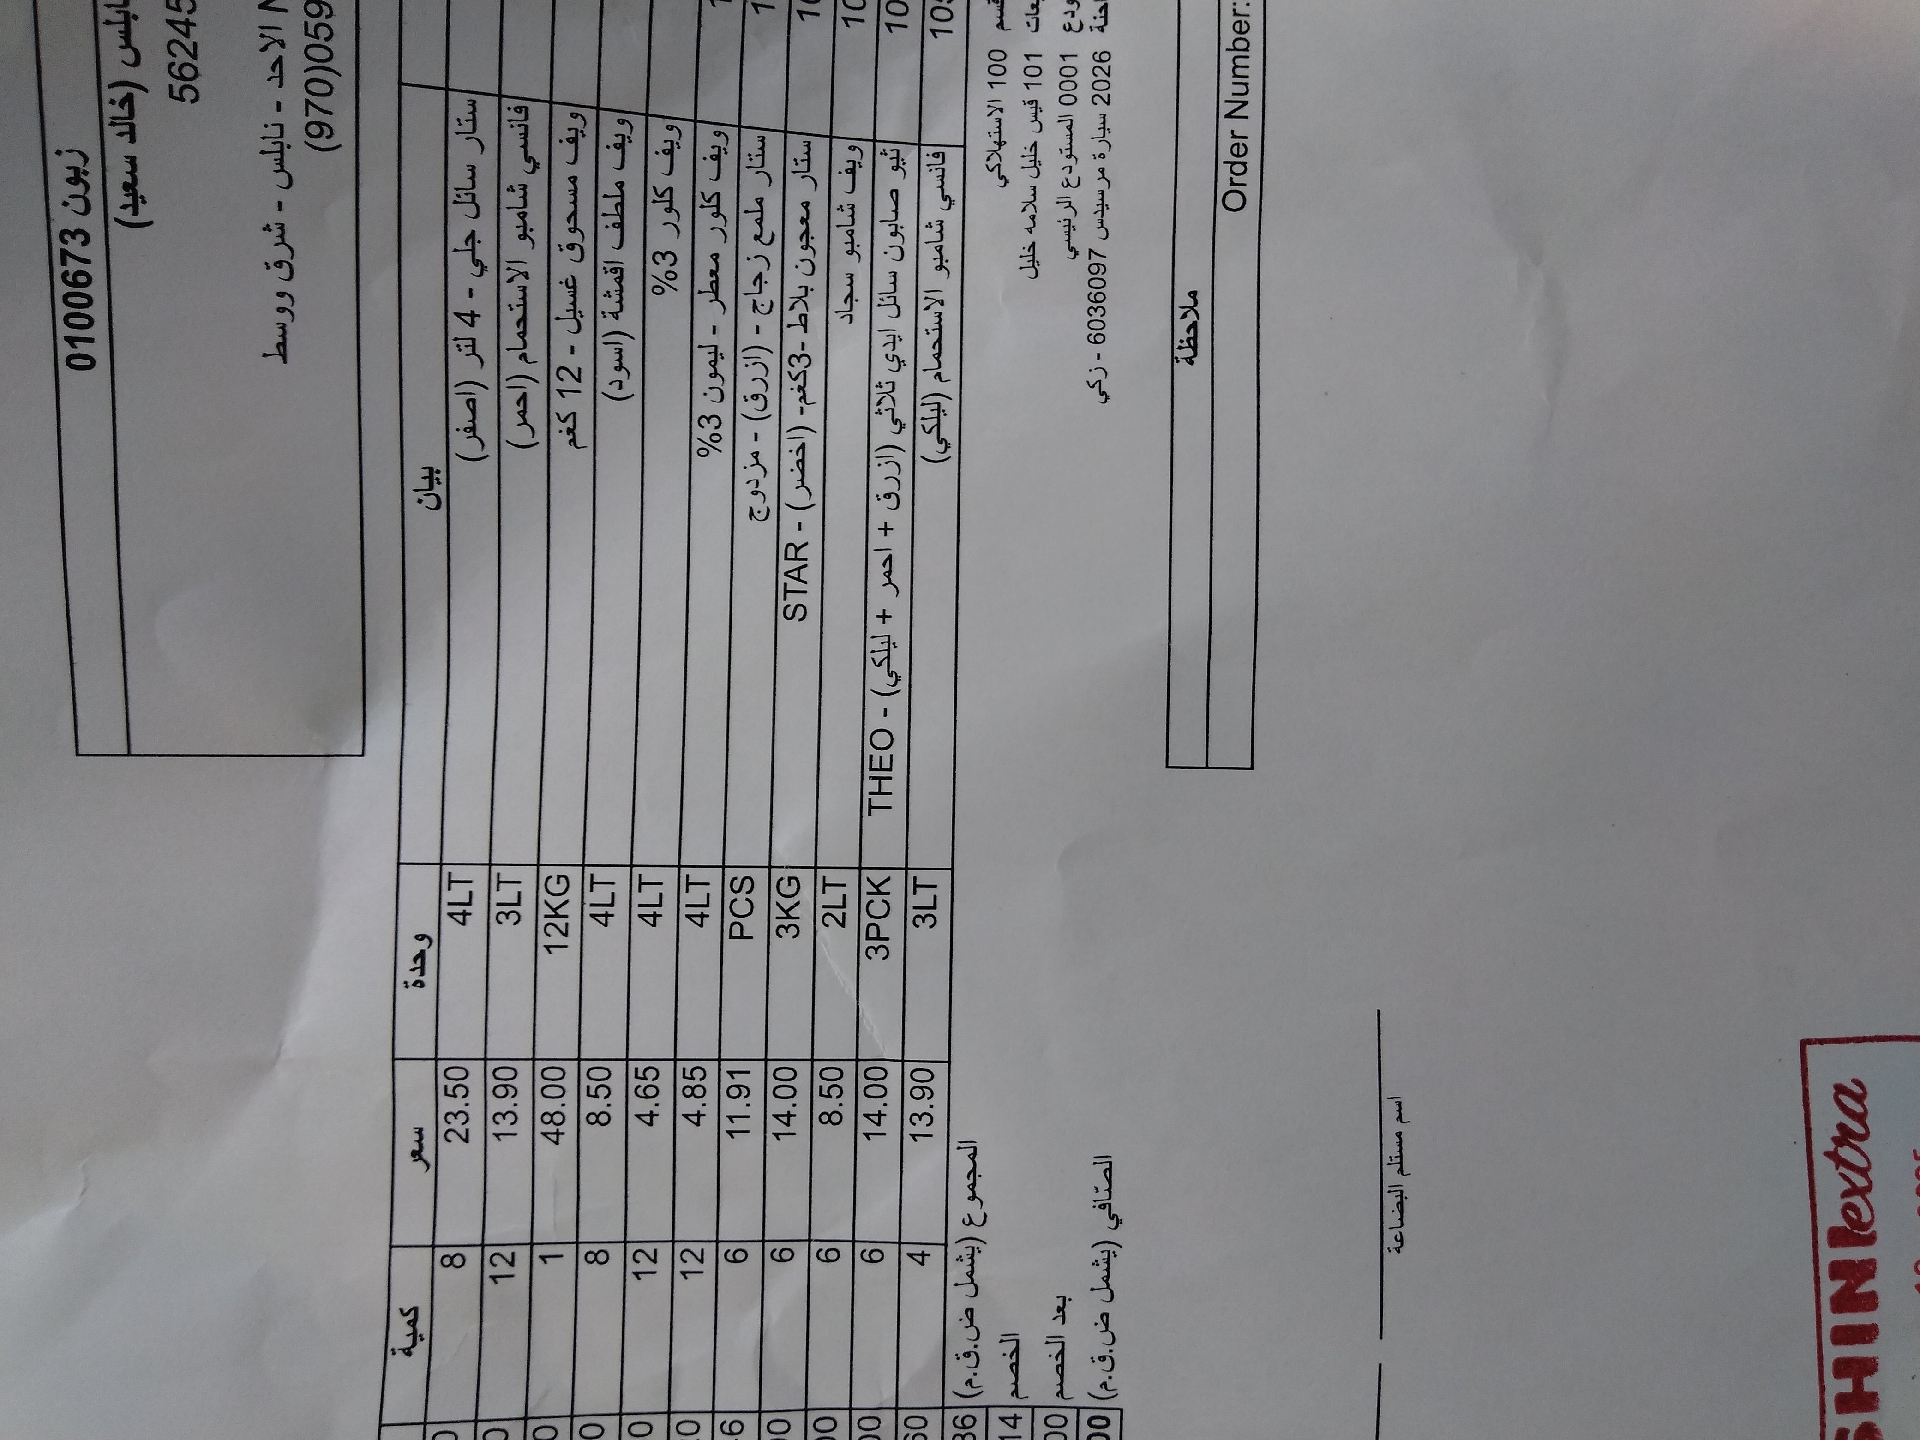 زبون 0100673
(خالد سعيد)
56245
الاحد - نابلس - شرق ووسط
(970)059
بيان وحدة سعر كمية
ستار سائل جلي - 4 لتر (اصفر) 4LT 23.50 8
فانسي شامبو الاستحمام (احمر) 3LT 13.90 12
ويف مسحوق غسيل - 12 كغم 12KG 48.00 1
ويف ملطف اقمشة (اسود) 4LT 8.50 8
ويف كلور 3% 4LT 4.65 12
ويف كلور معطر - ليمون 3% 4LT 4.85 12
ستار ملمع زجاج - (ازرق) - مزدوج PCS 11.91 6
ستار معجون بلاط -3كغم- (اخضر) - STAR 3KG 14.00 6
ويف شامبو سجاد 2LT 8.50 6
ثيو صابون سائل ايدي ثلاثي (ازرق + احمر + ليلكي) - THEO 3PCK 14.00 6
فانسي شامبو الاستحمام (ليلكي) 3LT 13.90 4
المجموع (يشمل ض.ق.م)
الخصم
بعد الخصم
الصّافي (يشمل ض.ق.م)
100 الاستهلاكي
101 قيس خليل سلامه خليل
0001 المستودع الرئيسي
2026 سيارة مرسيدس 6036097 - زكي
ملاحظة
Order Number:
اسم مستلم البضاعة
SHINextra